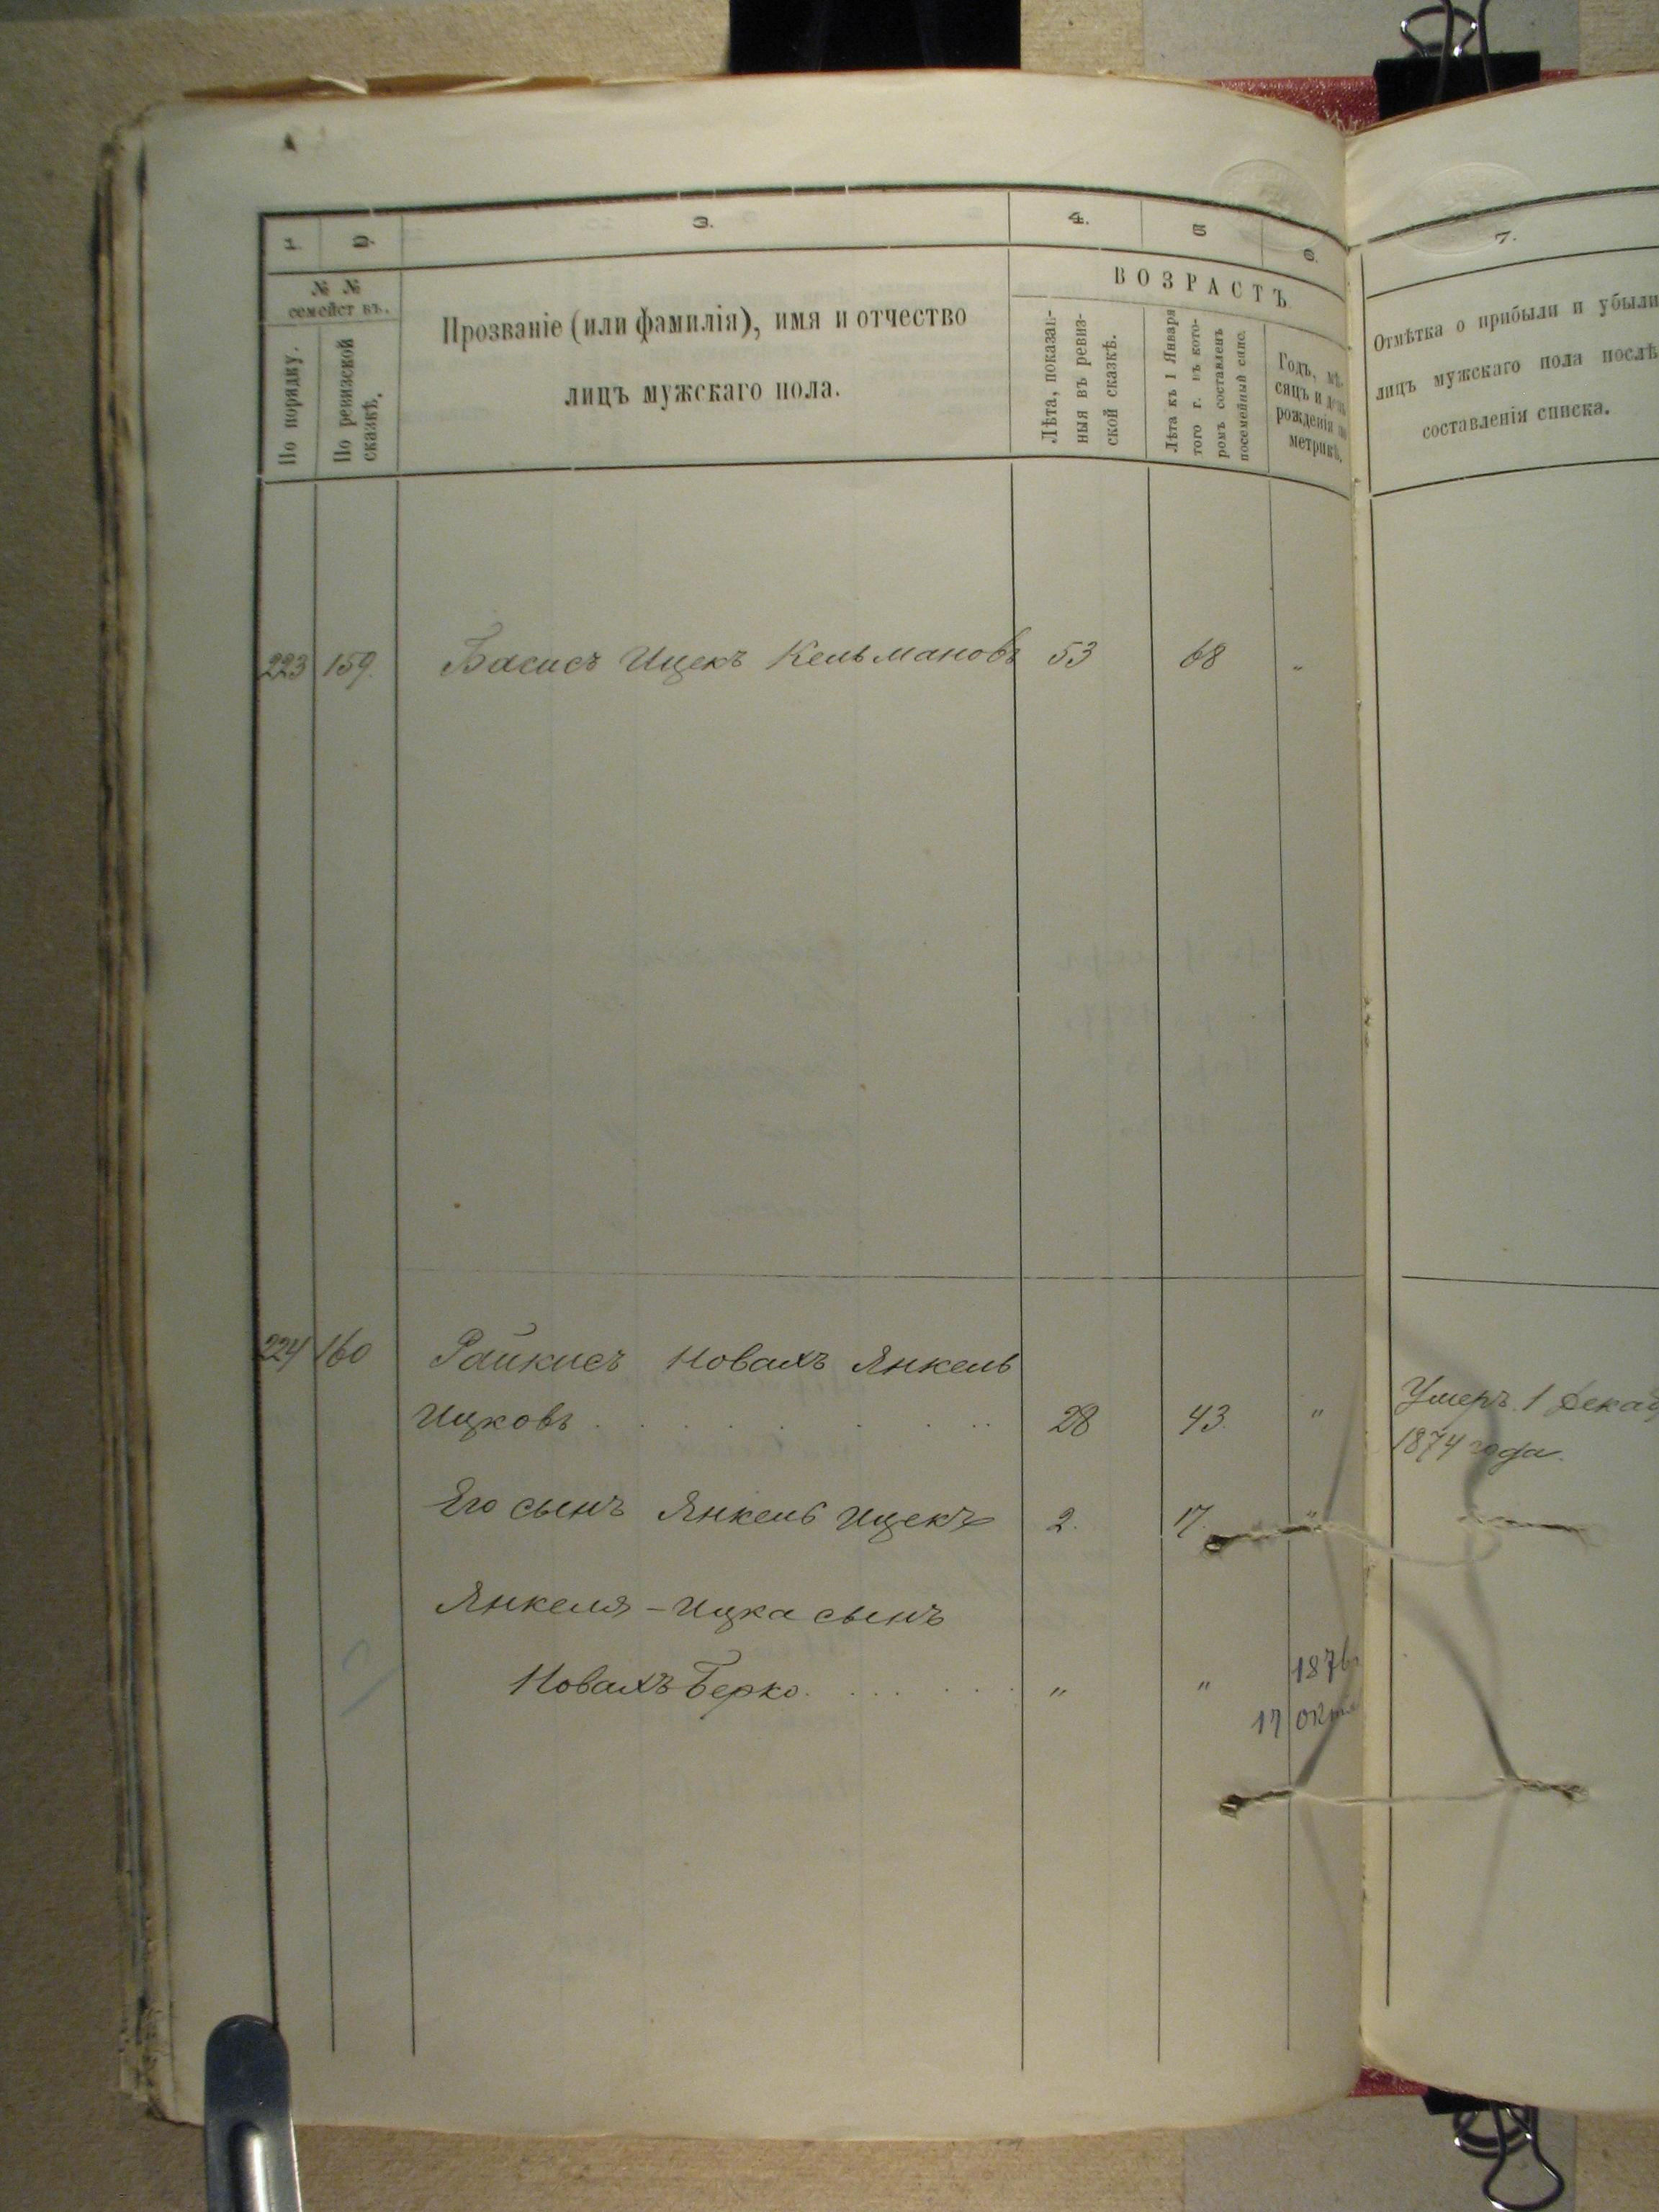 1. 2. 3. 4. 5 6. 7.
№ №
семействъ.
По порядку.
По ревизской
сказкѣ.
Прозваніе (или фамилія), имя и отчество
лицъ мужскаго пола.
ВОЗРАСТЪ.
Лѣта, показан-
ныя въ ревиз-
ской сказкѣ.
Лѣта къ 1 Января
того г. въ кото-
ромъ составленъ
посемейный спис.
Годъ, мѣ-
сяцъ и день
рожденія по
метрикѣ.
Отмѣтка о прибыли и убыли
лицъ мужскаго пола послѣ
составленія списка.
223 159. Басисъ Ицекъ Кельмановъ 53 68 „
224 160 Райкисъ Новахъ Янкель
Ицковъ . . . . . . . 28 43. „
Умеръ 1 Декаб
1874 года.
Его сынъ Янкель Ицекъ 2. 17. „
Янкеля - Ицка сынъ
Новахъ Берко. . . . . . „ „
1876
17 окт